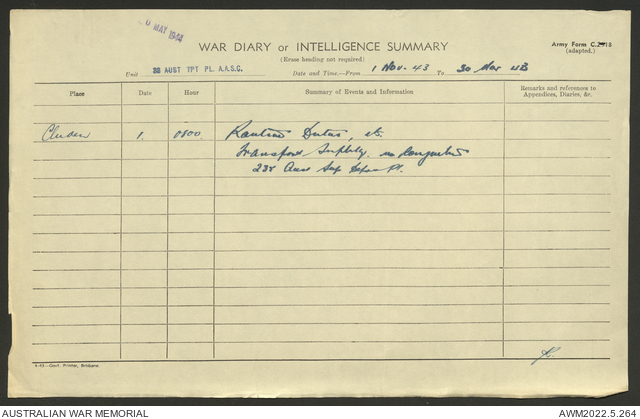 MAY 1944
WAR DIARY or INTELLIGENCE SUMMARY
(Erase heading not required)
Army Form C.2118
(adapted.)
Unit 88 AUST TPT PL. A.A.S.C. Date and Time—From 1 Nov. 43 To 30 Mar
Place Date Hour Summary of Events and Information Remarks and references to
Appendices, Diaries, &c.
Cluden 1. 0800. Routine Duties, etc.
Transport Supply
Aust Sup Depot Pl.
4-43—Govt. Printer, Brisbane.
AUSTRALIAN WAR MEMORIAL
AWM2022.5.264